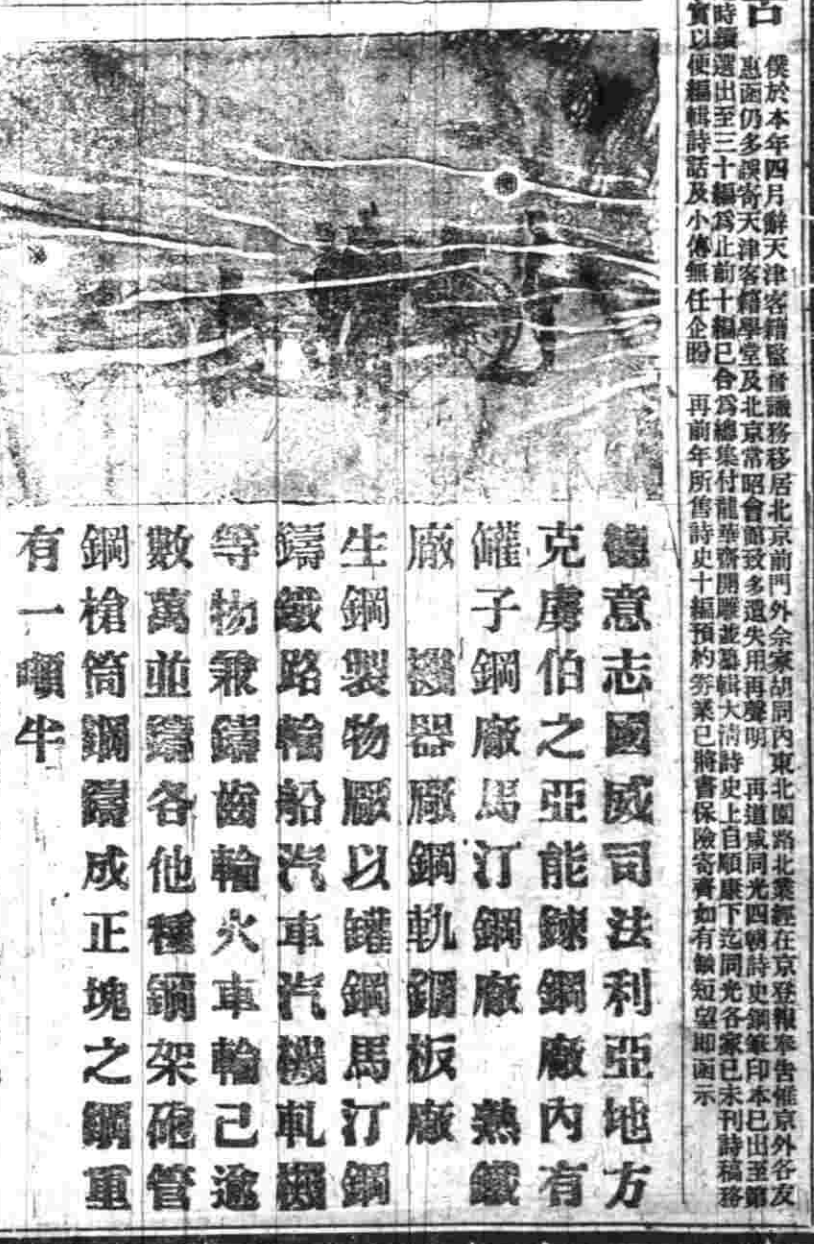 告
僕於本年四月辭天津客籍監督議務移居北京前門外佘家胡同內東北園路北業經在京登報奉告惟京外各友
惠函仍多誤寄天津客籍學堂及北京常昭會館致多遺失用再聲明 再道咸同光四朝詩史鋼筆印本已出至第
時續選出至三十編為止前十編已合為總集付龍華齋開雕並纂輯大清詩史上自順康下迄同光各家已未刊詩稿務
實以便編輯詩話及小傳無任企盼 再前年所售詩史十編預約劵業已將書保險寄齊如有缺短望即函示
德意志國威司法利亞地方
克虜伯之亞能鍊鋼廠內有
罐子鋼廠馬汀鋼廠 熱鐵
廠 機器廠鋼軌鋼板廠
生鋼製物廠以罐鋼馬汀鋼
鑄鐵路輪船汽車汽機軋機
等物兼鑄齒輪火車輪己逾
數萬並鑄各他種鋼架砲管
鋼槍筒鋼鑄成正塊之鋼重
有一噸半